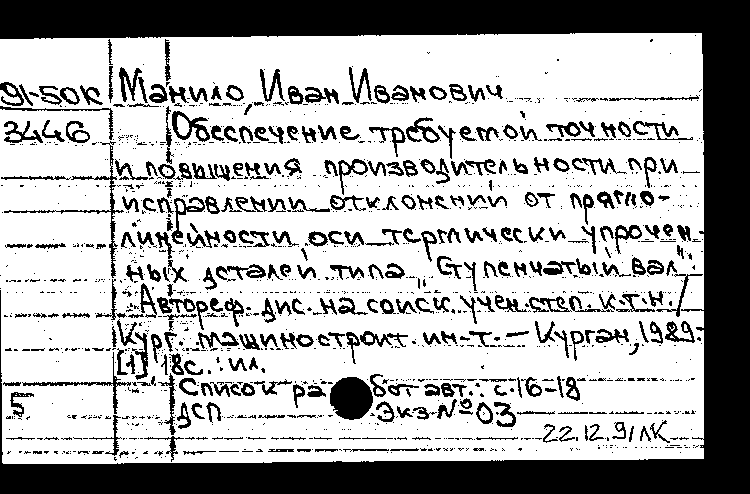 91-50К Манило, Иван Иванович
3446 Обеспечение требуемой точности
и повышения производительности при
исправлении отклонений от прямо-
линейности оси термически упрочен-
ных деталей типа „Ступенчатый вал":
Автореф. дис. на соиск. учен. степ. к.т.н. /
Кург. машиностроит. ин-т. — Курган, 1989.-
[1], 18с. : ил.
Список работ авт.: с. 16-18
5 ДСП Экз. № 03
22.12.91 ЛК